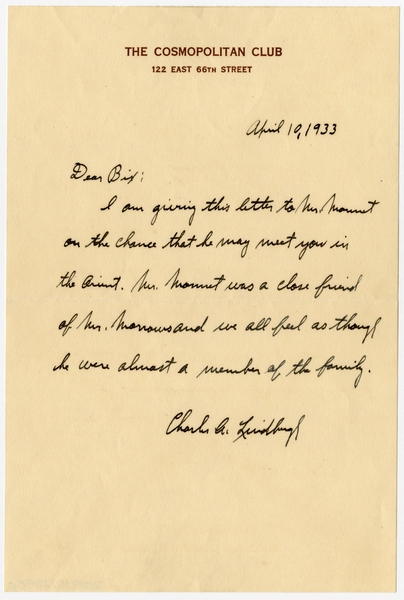 THE COSMOPOLITAN CLUB
122 EAST 66TH STREET
April 10, 1933
Dear Bix:
I am giving this letter to Mr. Monnet
on the chance that he may meet you in
the Orient. Mr. Monnet was a close friend
of Mr. Morrows and we all feel as though
he were almost a member of the family.
Charles A. Lindbergh